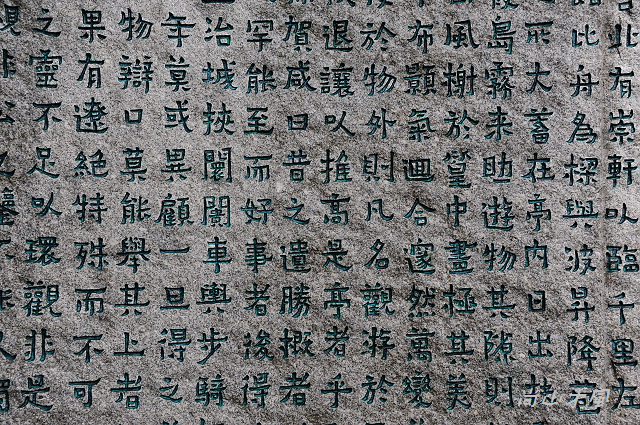 北有崇軒以臨千里左
比舟為樑與波昇降苞
大蓄在亭內日出
島霧來助遊物其隙則
風榭於篁中盡極其美
布顥氣画合邃然萬變
於物外則凡名觀游於
退讓以推高是亭者乎
賀咸曰昔之遺勝概者
罕能至而好事者後得
治城挾闤闠車輿步騎
年莫或異顧一旦得之
物辯口莫能舉其上者
果有遼絕特殊而不可
之靈不足以環觀非是